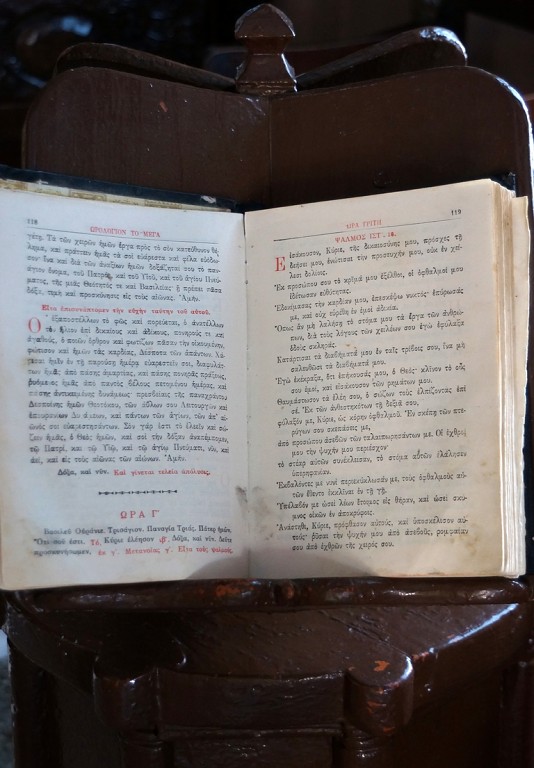 118
ΩΡΟΛΟΓΙΟΝ ΤΟ ΜΕΓΑ
τάτη. Τὰ τῶν χειρῶν ἡμῶν ἔργα πρὸς τὸ σὸν κατεύθυνον θέ-
λημα, καὶ πράττειν ἡμᾶς τὰ σοὶ εὐάρεστα καὶ φίλα εὐόδω-
σον· ἵνα καὶ διὰ τῶν ἀναξίων ἡμῶν δοξάζηταί σου τὸ παν-
άγιον ὄνομα, τοῦ Πατρός, καὶ τοῦ Υἱοῦ, καὶ τοῦ ἁγίου Πνεύ-
ματος, τῆς μιᾶς Θεότητός τε καὶ Βασιλείας· ᾗ πρέπει πᾶσα
δόξα, τιμὴ καὶ προσκύνησις εἰς τοὺς αἰῶνας. Ἀμήν.
Εἶτα ἐπισυνάπτομεν τὴν εὐχὴν ταύτην τοῦ αὐτοῦ.
Ὁ ἐξαποστέλλων τὸ φῶς καὶ πορεύεται, ὁ ἀνατέλλων
τὸν ἥλιον ἐπὶ δικαίους καὶ ἀδίκους, πονηρούς τε καὶ
ἀγαθούς, ὁ ποιῶν ὄρθρον καὶ φωτίζων πᾶσαν τὴν οἰκουμένην,
φώτισον καὶ ἡμῶν τὰς καρδίας, Δέσποτα τῶν ἁπάντων. Χά-
ρισαι ἡμῖν ἐν τῇ παρούσῃ ἡμέρᾳ εὐαρεστεῖν σοι, διαφυλάτ-
των ἡμᾶς ἀπὸ πάσης ἁμαρτίας, καὶ πάσης πονηρᾶς πράξεως,
ῥυόμενος ἡμᾶς ἀπὸ παντὸς βέλους πετομένου ἡμέρας, καὶ
πάσης ἀντικειμένης δυνάμεως· πρεσβείαις τῆς παναχράντου
Δεσποίνης ἡμῶν Θεοτόκου, τῶν ἀΰλων σου Λειτουργῶν καὶ
ἐπουρανίων Δυνάμεων, καὶ πάντων τῶν ἁγίων, τῶν ἀπ' αἰ-
ῶνός σοι εὐαρεστησάντων. Σὸν γάρ ἐστι τὸ ἐλεεῖν καὶ σώ-
ζειν ἡμᾶς, ὁ Θεὸς ἡμῶν, καὶ σοὶ τὴν δόξαν ἀναπέμπομεν,
τῷ Πατρί, καὶ τῷ Υἱῷ, καὶ τῷ ἁγίῳ Πνεύματι, νῦν, καὶ
ἀεί, καὶ εἰς τοὺς αἰῶνας τῶν αἰώνων. Ἀμήν.
Δόξα, καὶ νῦν. Καὶ γίνεται τελεία ἀπόλυσις.
ΩΡΑ Γ΄
Βασιλεῦ Οὐράνιε. Τρισάγιον. Παναγία Τριάς. Πάτερ ἡμῶν.
Ὅτι σοῦ ἐστι. Τὸ, Κύριε ἐλέησον ιβ΄. Δόξα, καὶ νῦν. Δεῦτε
προσκυνήσωμεν, ἐκ γ΄. Μετανοίας γ΄. Εἶτα τοὺς ψαλμούς.
119
ΩΡΑ ΤΡΙΤΗ
ΨΑΛΜΟΣ ΙΣΤ΄. 16.
Εἰσάκουσον, Κύριε, τῆς δικαιοσύνης μου, πρόσχες τῇ
δεήσει μου, ἐνώτισαι τὴν προσευχήν μου, οὐκ ἐν χεί-
λεσι δολίοις.
Ἐκ προσώπου σου τὸ κρῖμά μου ἐξέλθοι, οἱ ὀφθαλμοί μου
ἰδέτωσαν εὐθύτητας.
Ἐδοκίμασας τὴν καρδίαν μου, ἐπεσκέψω νυκτός· ἐπύρωσάς
με, καὶ οὐχ εὑρέθη ἐν ἐμοὶ ἀδικία.
Ὅπως ἂν μὴ λαλήσῃ τὸ στόμα μου τὰ ἔργα τῶν ἀνθρώ-
πων, διὰ τοὺς λόγους τῶν χειλέων σου ἐγὼ ἐφύλαξα
ὁδοὺς σκληράς.
Κατάρτισαι τὰ διαβήματά μου ἐν ταῖς τρίβοις σου, ἵνα μὴ
σαλευθῶσι τὰ διαβήματά μου.
Ἐγὼ ἐκέκραξα, ὅτι ἐπήκουσάς μου, ὁ Θεός· κλῖνον τὸ οὖς
σου ἐμοί, καὶ εἰσάκουσον τῶν ῥημάτων μου.
Θαυμάστωσον τὰ ἐλέη σου, ὁ σώζων τοὺς ἐλπίζοντας ἐπὶ
σέ. Ἐκ τῶν ἀνθεστηκότων τῇ δεξιᾷ σου,
φύλαξόν με, Κύριε, ὡς κόρην ὀφθαλμοῦ. Ἐν σκέπῃ τῶν πτε-
ρύγων σου σκεπάσεις με,
ἀπὸ προσώπου ἀσεβῶν τῶν ταλαιπωρησάντων με. Οἱ ἐχθροί
μου τὴν ψυχήν μου περιέσχον·
τὸ στέαρ αὐτῶν συνέκλεισαν, τὸ στόμα αὐτῶν ἐλάλησεν
ὑπερηφανίαν.
Ἐκβαλόντες με νυνὶ περιεκύκλωσάν με, τοὺς ὀφθαλμοὺς αὐ-
τῶν ἔθεντο ἐκκλῖναι ἐν τῇ γῇ.
Ὑπέλαβόν με ὡσεὶ λέων ἕτοιμος εἰς θήραν, καὶ ὡσεὶ σκύ-
μνος οἰκῶν ἐν ἀποκρύφοις.
Ἀνάστηθι, Κύριε, πρόφθασον αὐτούς, καὶ ὑποσκέλισον αὐ-
τούς· ῥῦσαι τὴν ψυχήν μου ἀπὸ ἀσεβοῦς, ῥομφαίαν
σου ἀπὸ ἐχθρῶν τῆς χειρός σου.